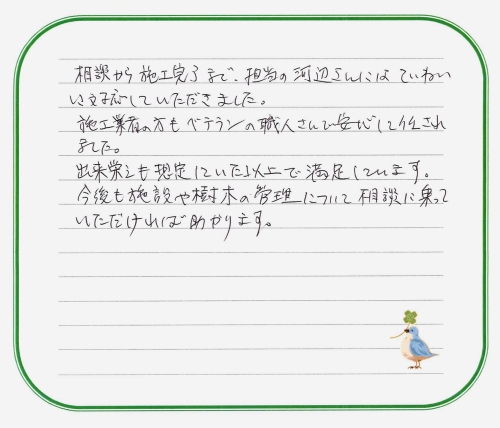 相談から施工完了まで、担当の河辺さんにはていねい
に対応していただきました。
施工業者の方もベテランの職人さんで安心して任され
ました。
出来栄えも想定していた以上で満足しています。
今後も施設や樹木の管理について相談に乗って
いただければ助かります。